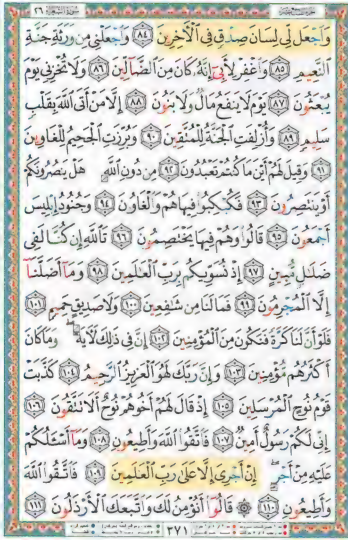 وَاجْعَل لِّي لِسَانَ صِدْقٍ فِي الْآخِرِينَ ﴿٨٤﴾ وَاجْعَلْنِي مِن وَرَثَةِ جَنَّةِ
النَّعِيمِ ﴿٨٥﴾ وَاغْفِرْ لِأَبِي إِنَّهُ كَانَ مِنَ الضَّالِّينَ ﴿٨٦﴾ وَلَا تُخْزِنِي يَوْمَ
يُبْعَثُونَ ﴿٨٧﴾ يَوْمَ لَا يَنفَعُ مَالٌ وَلَا بَنُونَ ﴿٨٨﴾ إِلَّا مَنْ أَتَى اللَّهَ بِقَلْبٍ
سَلِيمٍ ﴿٨٩﴾ وَأُزْلِفَتِ الْجَنَّةُ لِلْمُتَّقِينَ ﴿٩٠﴾ وَبُرِّزَتِ الْجَحِيمُ لِلْغَاوِينَ
﴿٩١﴾ وَقِيلَ لَهُمْ أَيْنَ مَا كُنتُمْ تَعْبُدُونَ ﴿٩٢﴾ مِن دُونِ اللَّهِ هَلْ يَنصُرُونَكُمْ
أَوْ يَنتَصِرُونَ ﴿٩٣﴾ فَكُبْكِبُوا فِيهَا هُمْ وَالْغَاوُونَ ﴿٩٤﴾ وَجُنُودُ إِبْلِيسَ
أَجْمَعُونَ ﴿٩٥﴾ قَالُوا وَهُمْ فِيهَا يَخْتَصِمُونَ ﴿٩٦﴾ تَاللَّهِ إِن كُنَّا لَفِي
ضَلَالٍ مُّبِينٍ ﴿٩٧﴾ إِذْ نُسَوِّيكُم بِرَبِّ الْعَالَمِينَ ﴿٩٨﴾ وَمَا أَضَلَّنَا
إِلَّا الْمُجْرِمُونَ ﴿٩٩﴾ فَمَا لَنَا مِن شَافِعِينَ ﴿١٠٠﴾ وَلَا صَدِيقٍ حَمِيمٍ ﴿١٠١﴾
فَلَوْ أَنَّ لَنَا كَرَّةً فَنَكُونَ مِنَ الْمُؤْمِنِينَ ﴿١٠٢﴾ إِنَّ فِي ذَٰلِكَ لَآيَةً وَمَا كَانَ
أَكْثَرُهُم مُّؤْمِنِينَ ﴿١٠٣﴾ وَإِنَّ رَبَّكَ لَهُوَ الْعَزِيزُ الرَّحِيمُ ﴿١٠٤﴾ كَذَّبَتْ
قَوْمُ نُوحٍ الْمُرْسَلِينَ ﴿١٠٥﴾ إِذْ قَالَ لَهُمْ أَخُوهُمْ نُوحٌ أَلَا تَتَّقُونَ ﴿١٠٦﴾
إِنِّي لَكُمْ رَسُولٌ أَمِينٌ ﴿١٠٧﴾ فَاتَّقُوا اللَّهَ وَأَطِيعُونِ ﴿١٠٨﴾ وَمَا أَسْأَلُكُمْ
عَلَيْهِ مِنْ أَجْرٍ إِنْ أَجْرِيَ إِلَّا عَلَىٰ رَبِّ الْعَالَمِينَ ﴿١٠٩﴾ فَاتَّقُوا اللَّهَ
وَأَطِيعُونِ ﴿١١٠﴾ ۞ قَالُوا أَنُؤْمِنُ لَكَ وَاتَّبَعَكَ الْأَرْذَلُونَ ﴿١١١﴾
٣٧١